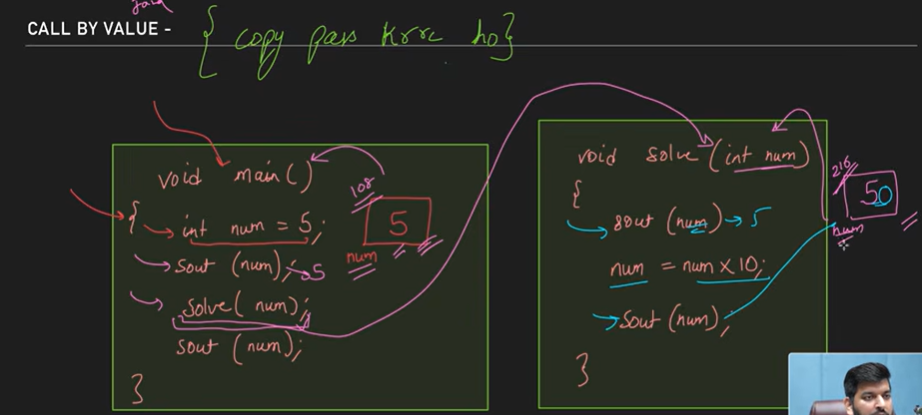 Java
CALL BY VALUE - { copy pass krrc ho}
void main()
{
int num = 5;
sout (num); → 5
solve( num);
sout (num);
}
108
5
num
void solve (int num)
{
sout (num) → 5
num = num × 10;
sout (num);
}
216
50
num